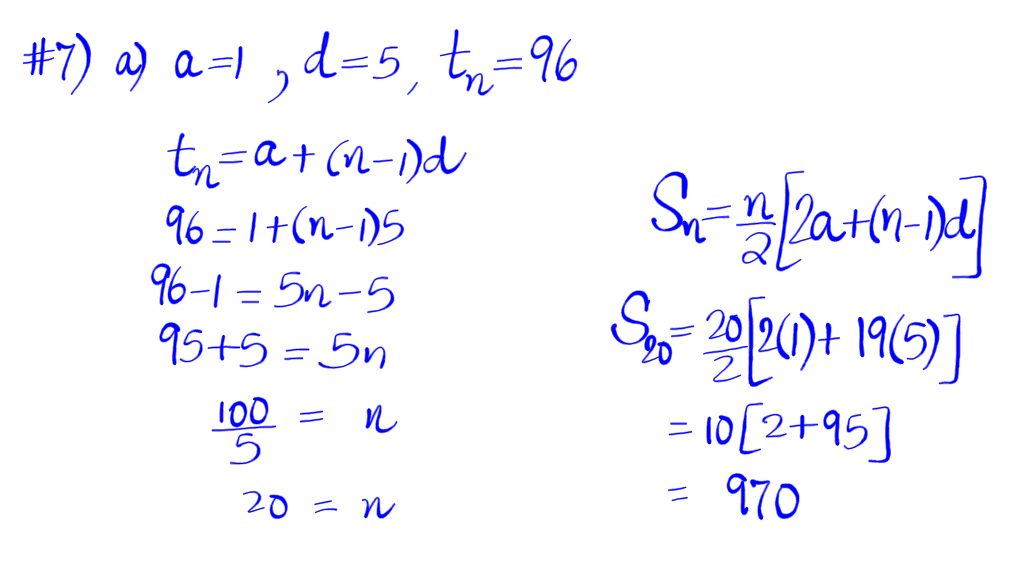 #7) a) a=1 , d=5, tₙ=96
tₙ=a+(n-1)d
96=1+(n-1)5
96-1=5n-5
95+5=5n
100/5 = n
20 = n
Sₙ=n/2[2a+(n-1)d]
S₂₀=20/2[2(1)+19(5)]
=10[2+95]
= 970